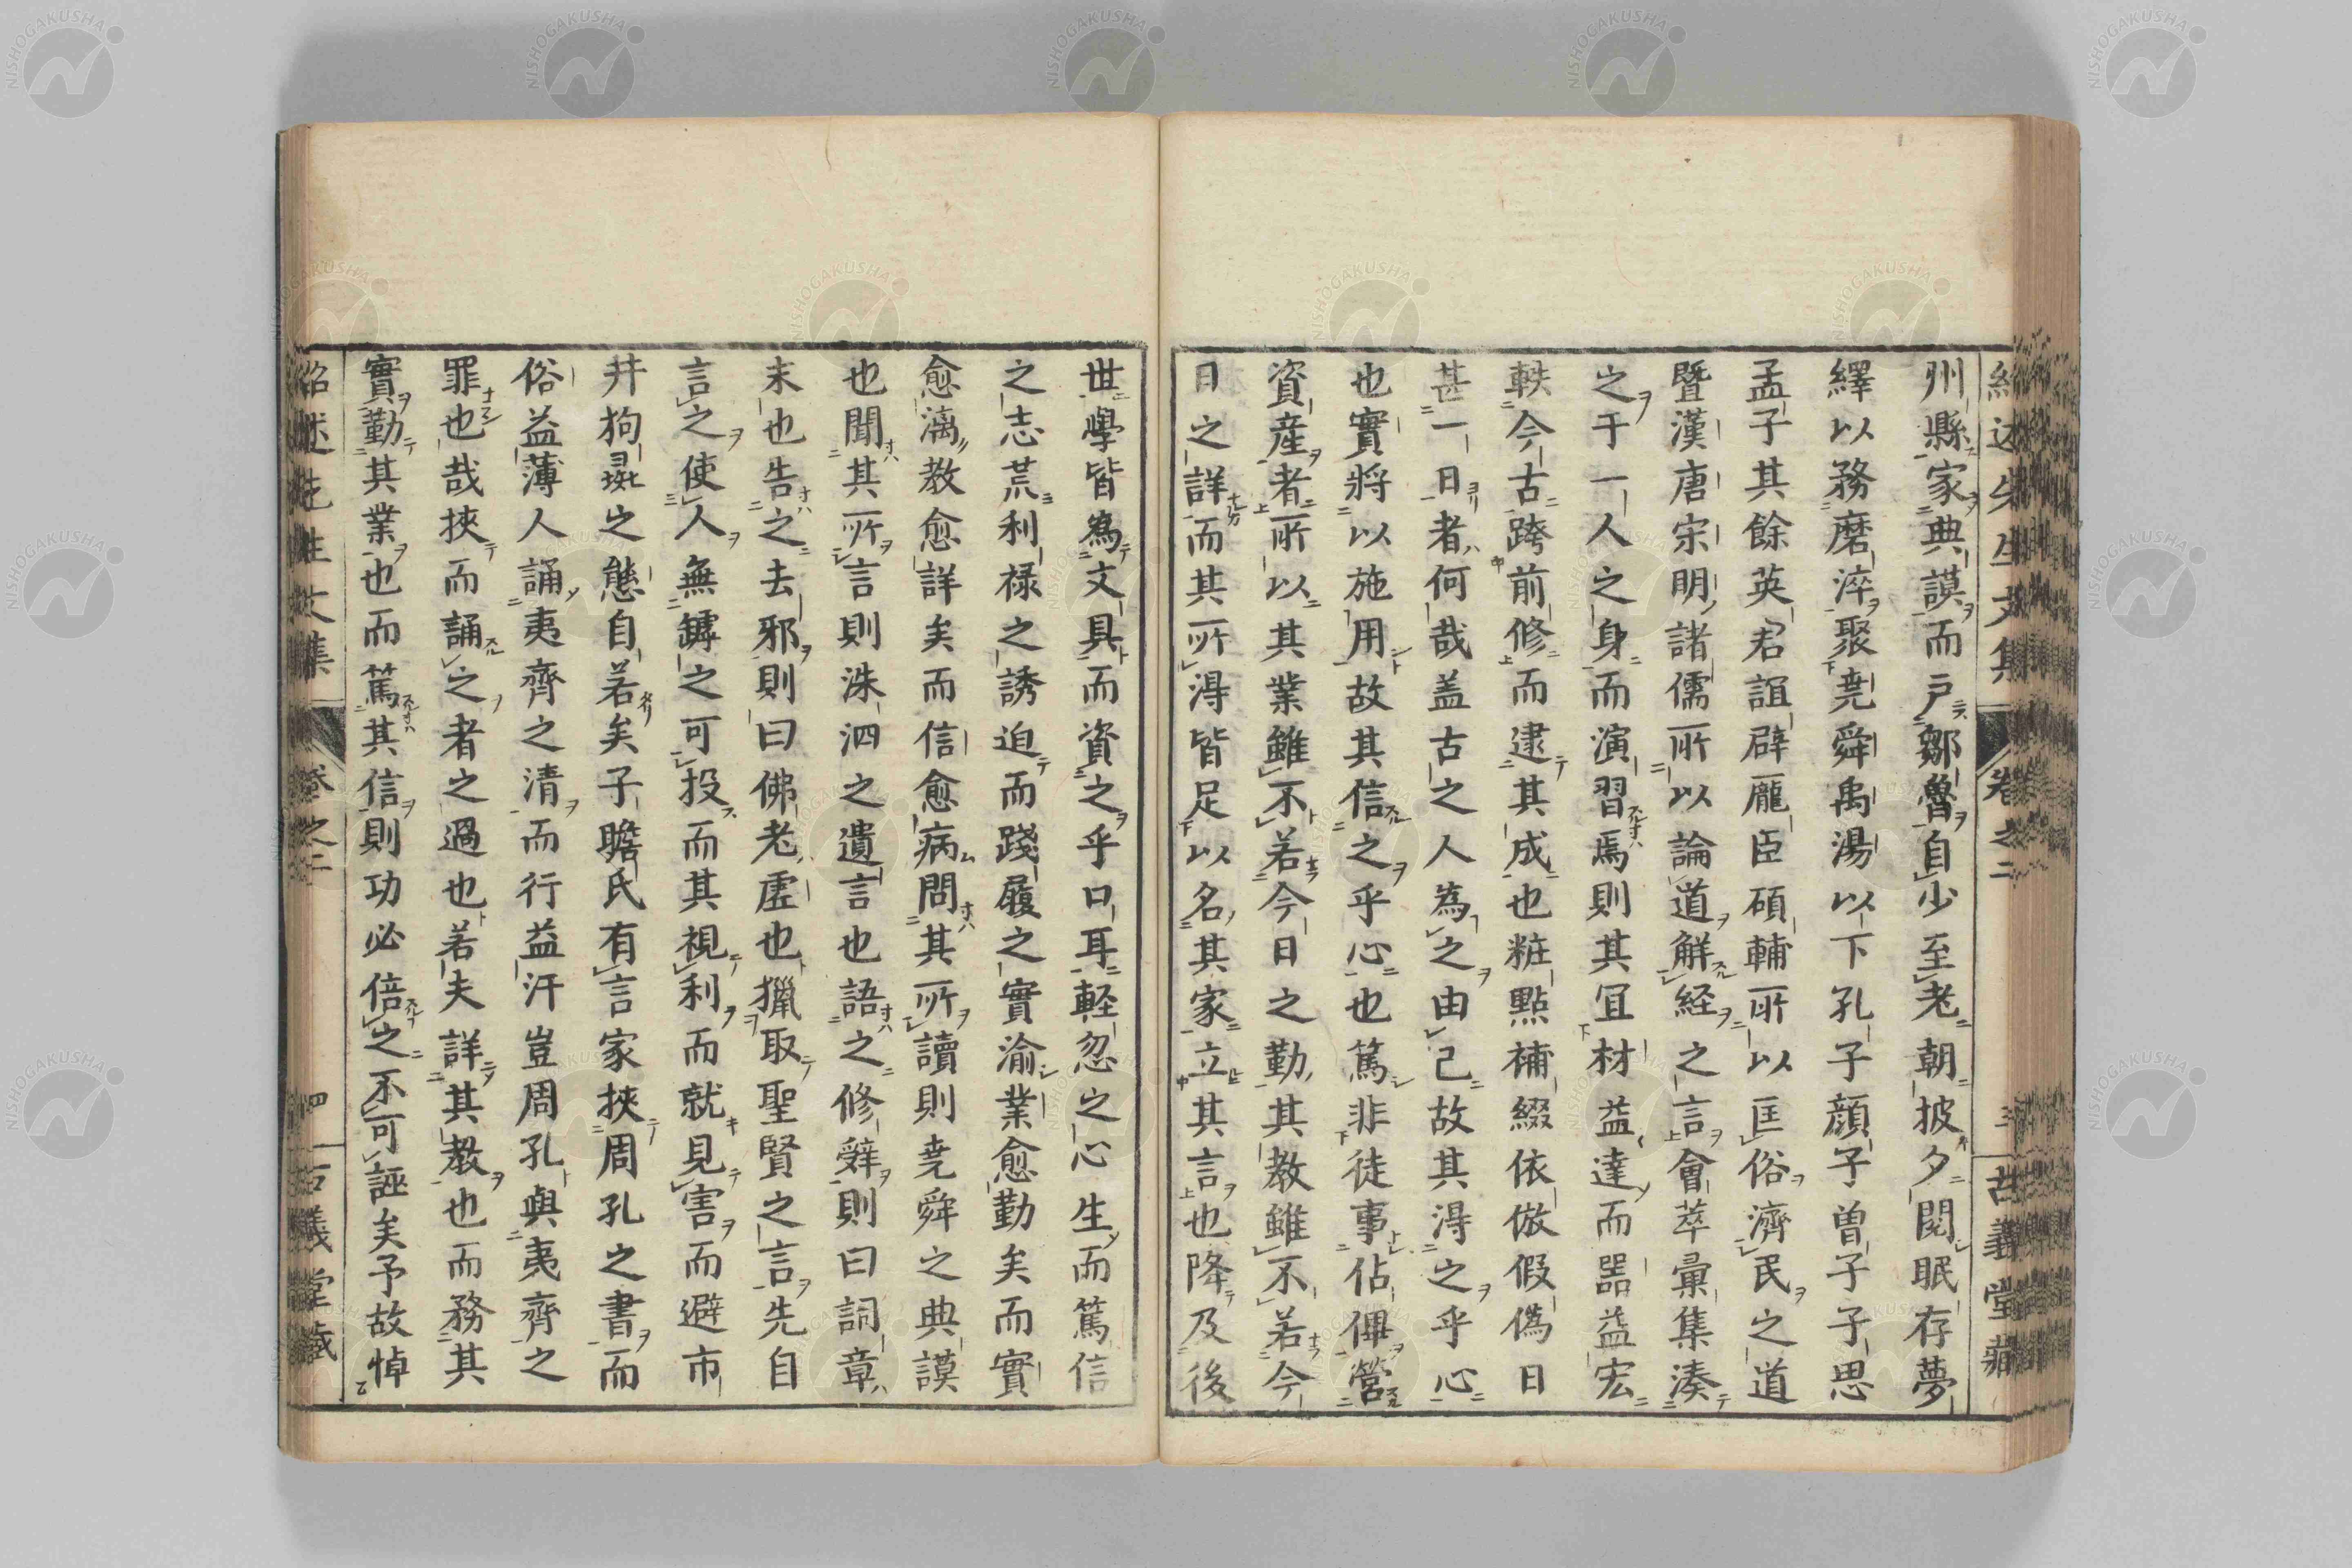 州縣家典謨而戸鄒魯自少至老朝披夕閱眠存夢
繹以務磨淬聚堯舜禹湯以下孔子顔子曽子子思
孟子其餘英君誼辟龐臣碩輔所以匡俗濟民之道
曁漢唐宋明諸儒所以論道解経之言會萃彙集湊
之于一人之身而演習焉則其冝材益達而噐益宏
軼今古跨前修而逮其成也粧點補綴依倣假僞日
甚一日者何哉盖古之人為之由己故其得之乎心
也實將以施用故其信之乎心也篤非徒事佔俾營
資産者所以其業雖不若今日之勤其教雖不若今
日之詳而其所得皆足以名其家立其言也降及後
世學皆為文具而資之乎口耳軽忽之心生而篤信
之志荒利禄之誘迫而踐履之實渝業愈勤矣而實
愈漓教愈詳矣而信愈病問其所讀則堯舜之典謨
也聞其所言則洙泗之遺言也語之修辭則曰詞章
末也告之去邪則曰佛老虚也獵取聖賢之言先自
言之使人無罅之可投而其視利而就見害而避市
井狗彘之態自若矣子瞻氏有言家挾周孔之書而
俗益薄人誦夷齊之清而行益汙豈周孔與夷齊之
罪也哉挾而誦之者之過也若夫詳其教也而務其
實勤其業也而篤其信則功必倍之不可誣矣予故悼
紹述先生文集
卷之二
三
古義堂藏
紹述先生文集
卷之二
四
古義堂藏
NISHOGAKUSHA